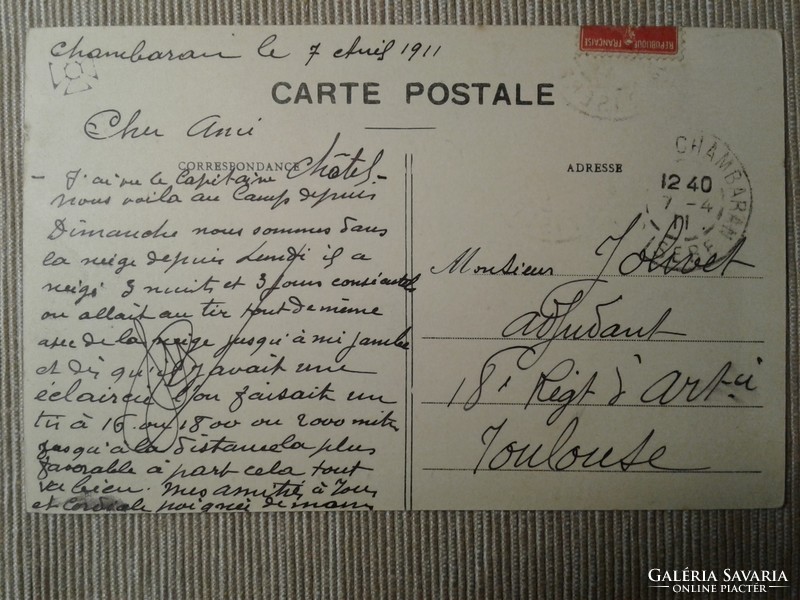 Chambaran le 7 Avril 1911
REPUBLIQUE FRANÇAISE
CARTE POSTALE
Cher Ami
CORRESPONDANCE
ADRESSE
- J'ai vu le Capitaine Châtel -
nous voila au Camp depuis
Dimanche nous sommes dans
la neige depuis Lundi il a
neigé 3 nuits et 3 jours
on allait au tir tout de meme
avec de la neige jusqu'à mi jambe
et dès qu'il y avait une
éclaircie l'on faisait un
tir à 16 ou 1800 ou 2000 mèt
jusqu'à la distance la plus
favorable à part cela tout
va bien. mes amitiés à Tous
et cordiale poignée de main
CHAMBARAN
12 40
7 - 4
11
ISERE
Monsieur Jolivet
adjudant
18e Régt d'Artie
Toulouse
GALÉRIA SAVARIA
ONLINE PIACTÉR